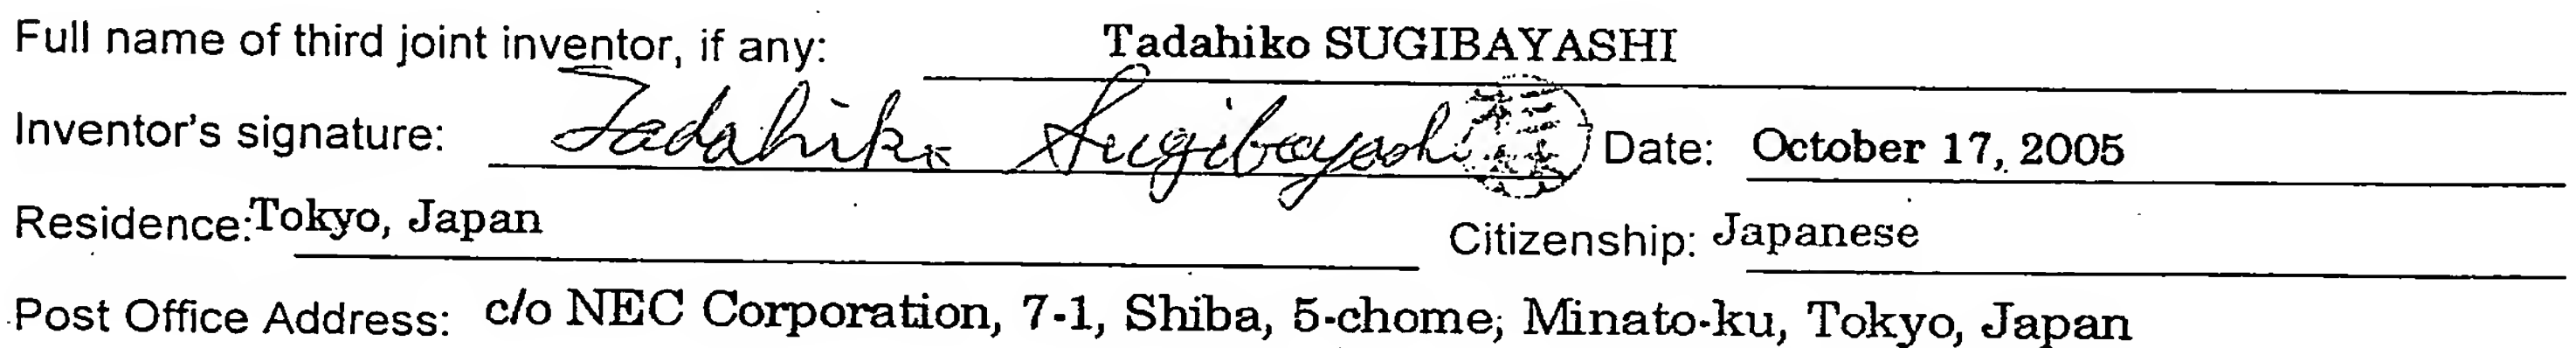 Full name of third joint inventor, if any: Tadahiko SUGIBAYASHI
Inventor's signature: Tadahiko Sugibayashi Date: October 17, 2005
Residence: Tokyo, Japan Citizenship: Japanese
Post Office Address: c/o NEC Corporation, 7-1, Shiba, 5-chome, Minato-ku, Tokyo, Japan